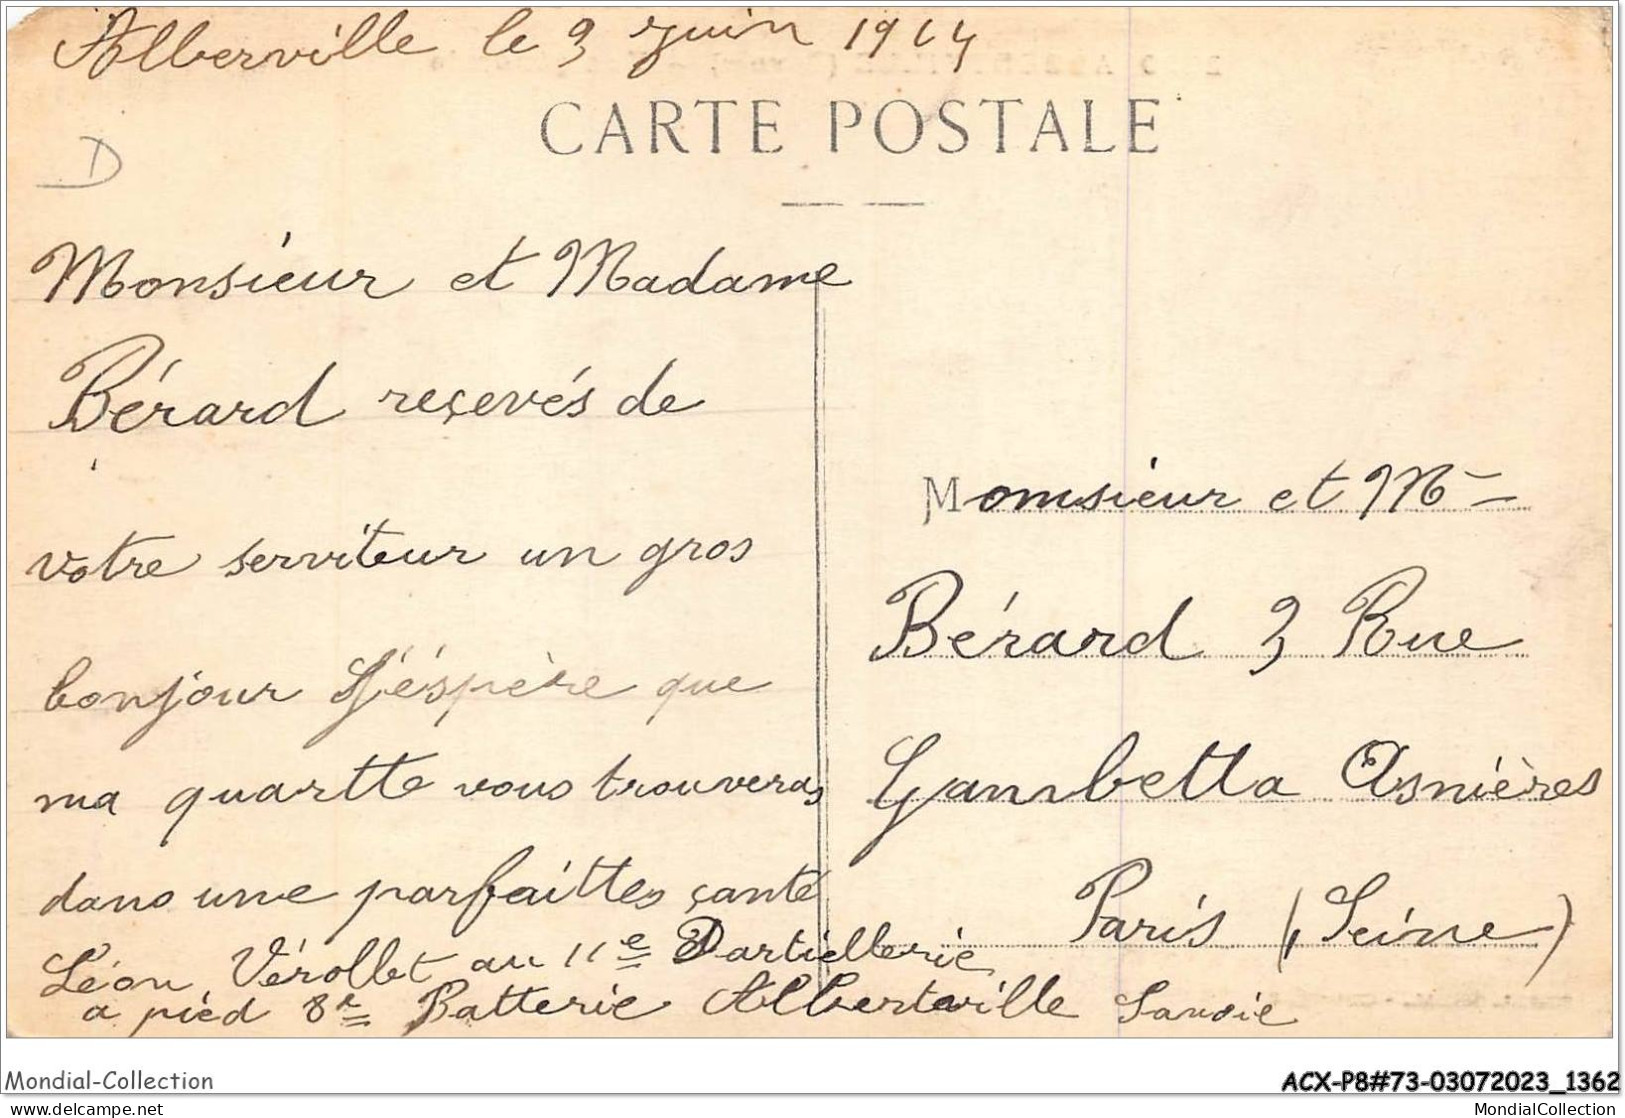 Alberville le 3 juin 1914
CARTE POSTALE
D
Monsieur et Madame
Bérard reçevés de
votre serviteur un gros
bonjour J'éspère que
ma quartte vous trouveras
dans une parfaittes çanté
Léon Vérollet au 11e D'artiellerie
a pied 8e Batterie Albertville Savoie
Monsieur et Mme
Bérard 3 Rue
Gambetta Asnières
Paris (Seine)
Mondial-Collection
ACX-P8#73-03072023_1362
mondial-collection.delcampe.net
MondialCollection